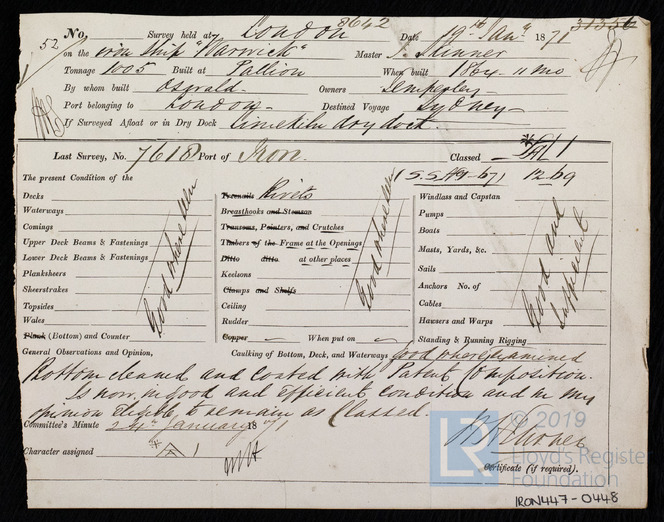 52 No. Survey held at London 8642 Date 19th Jany 1871 31356
on the iron Ship "Warwick" Master J. Skinner
Tonnage 1005 Built at Pallion When built 1864 - 11 mo
By whom built Oswald Owners Temperley
Port belonging to London Destined Voyage Sydney
If Surveyed Afloat or in Dry Dock Limekiln dry dock.
Last Survey, No. 7618 Port of Iron Classed A 1
S.S. No 1 - 67 12-69
The present Condition of the
Decks
Waterways
Comings
Upper Deck Beams & Fastenings
Lower Deck Beams & Fastenings
Planksheers
Sheerstrakes
Topsides
Wales
Plank (Bottom) and Counter
Good where seen
Treenails Rivets
Breasthooks and Stemson
Transoms, Pointers, and Crutches
Timbers of the Frame at the Openings
Ditto ditto at other places
Keelsons
Clamps and Shelfs
Ceiling
Rudder
Copper When put on
Good where seen
Windlass and Capstan
Pumps
Boats
Masts, Yards, &c.
Sails
Anchors No. of
Cables
Hawsers and Warps
Standing & Running Rigging
Good and
Sufficient
General Observations and Opinion, Caulking of Bottom, Deck, and Waterways good where examined
Bottom cleaned and coated with Patent Composition.
Is now in good and efficient condition and in my
opinion eligible to remain as Classed.
Committee's Minute 24th January 1871
Character assigned A 1
Certificate (if required).
© 2019
LR
Lloyd's Register
Foundation
IRON447-0448